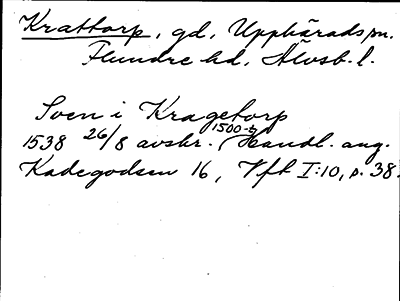 Krattorp, gd, Upphärads sn.
Flundre hd, Älvsb. l.
Sven i Kragetorp
1538 26/8 avskr. 1500-t Handl. ang.
Kadegodsen 16, Vft I:10, p. 38.